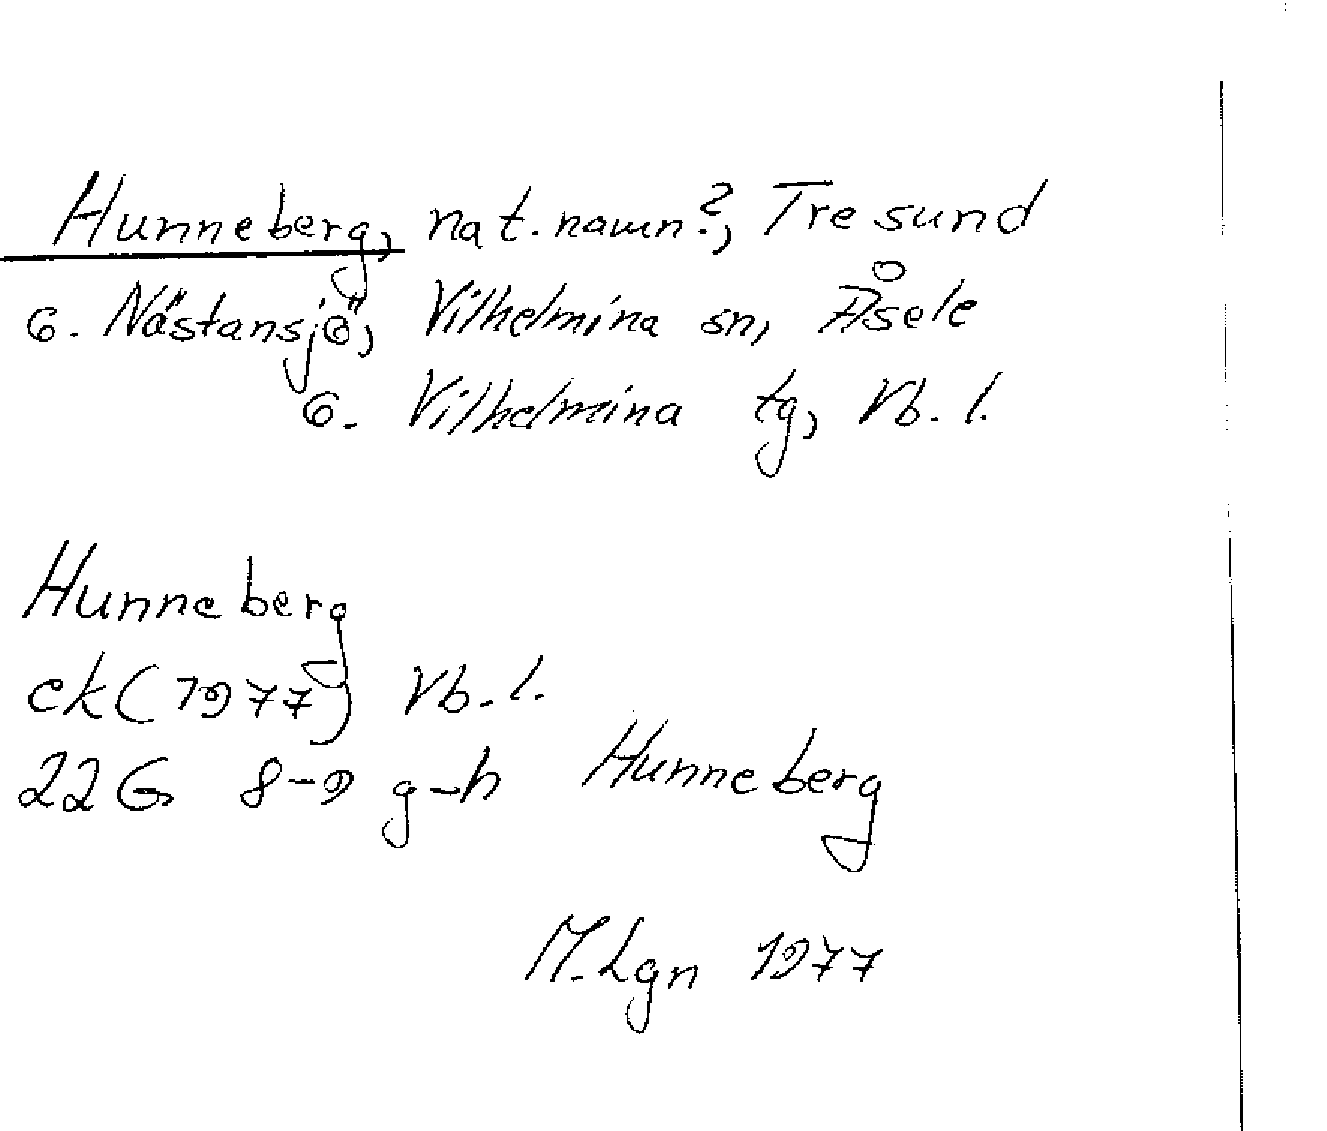 Hunneberg, nat. namn?, Tresund
o. Nästansjö, Vilhelmina sn, Åsele
o. Vilhelmina tg, Vb. l.
Hunneberg
ek (1977) Vb. l.
22G 8-9 g-h Hunneberg
M. Lgn 1977